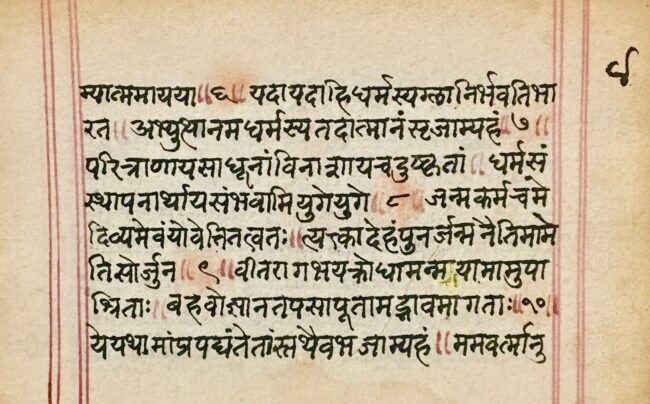 ४
म्यात्ममायया ॥ ६ ॥ यदायदाहिधर्मस्यग्लानिर्भवतिभा
रत ॥ अभ्युत्थानमधर्मस्यतदात्मानंसृजाम्यहं ॥ ७ ॥
परित्राणायसाधूनांविनाशायचदुष्कृतां ॥ धर्मसं
स्थापनार्थायसंभवामियुगेयुगे ॥ ८ ॥ जन्मकर्मचमे
दिव्यमेवंयोवेत्तितत्वतः ॥ त्यत्कादेहंपुनर्जन्मनैतिमामे
तिसोर्जुन ॥ ९ ॥ वीतरागभयक्रोधामन्मयामामुपा
श्रिताः ॥ बहवोज्ञानतपसापूतामद्भावमागताः ॥ १० ॥
येयथामांप्रपद्यंतेतांस्तथैवभजाम्यहं ॥ ममवर्त्मानु